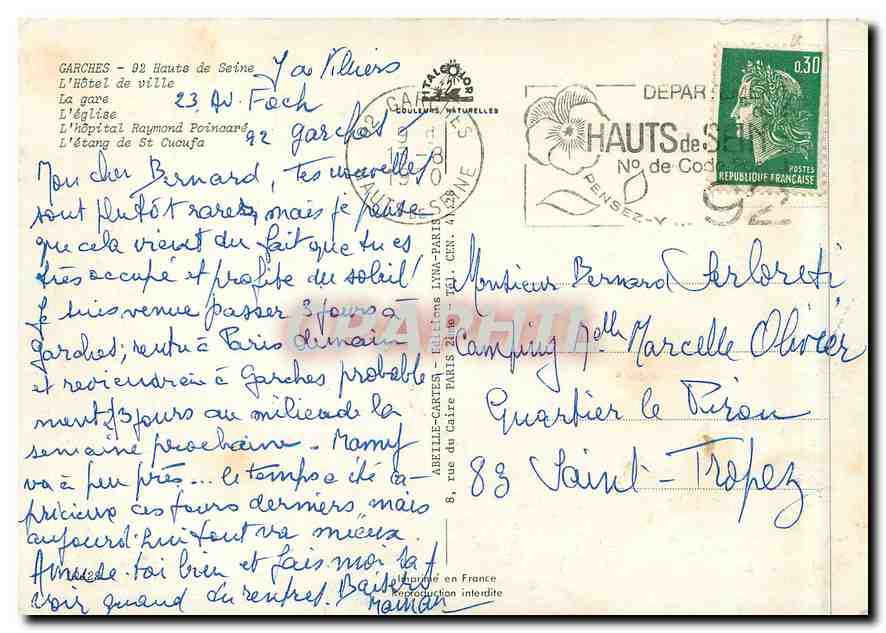 GARCHES - 92 Hauts de Seine
L'Hôtel de ville
La gare
L'église
L'hôpital Raymond Poincaré
L'étang de St Cucufa
23 Av. Foch
92 Garches
Mon cher Bernard, tes nouvelles
sont plutôt rares, mais je pense
que cela vient du fait que tu es
très occupé et profite du soleil!
Je suis venue passer 3 jours à
Garches; rentre à Paris demain
et reviendrai à Garches probable
ment 2/3 jours au milieu de la
semaine prochaine - Mamy
va à peu près... le temps a été ca-
pricieux ces jours derniers, mais
aujourd'hui tout va mieux.
Amuse-toi bien et fais moi sa-
voir quand tu rentres. Baisers
Maman
ITALCOLOR
COULEURS NATURELLES
92 GARCHES
HAUTS DE SEINE
HAUTS de SEINE
No de Code
PENSEZ-Y ...
92
0,30
POSTES
REPUBLIQUE FRANÇAISE
ABEILLE-CARTES - Editions LYNA-PARIS
8, rue du Caire PARIS 2ème - Tél. CEN. 41.28
CPAPHIL
Monsieur Bernard Serloreti
Camping Mlle Marcelle Olivier
Quartier le Piron
83 Saint-Tropez
Imprimé en France
Reproduction interdite